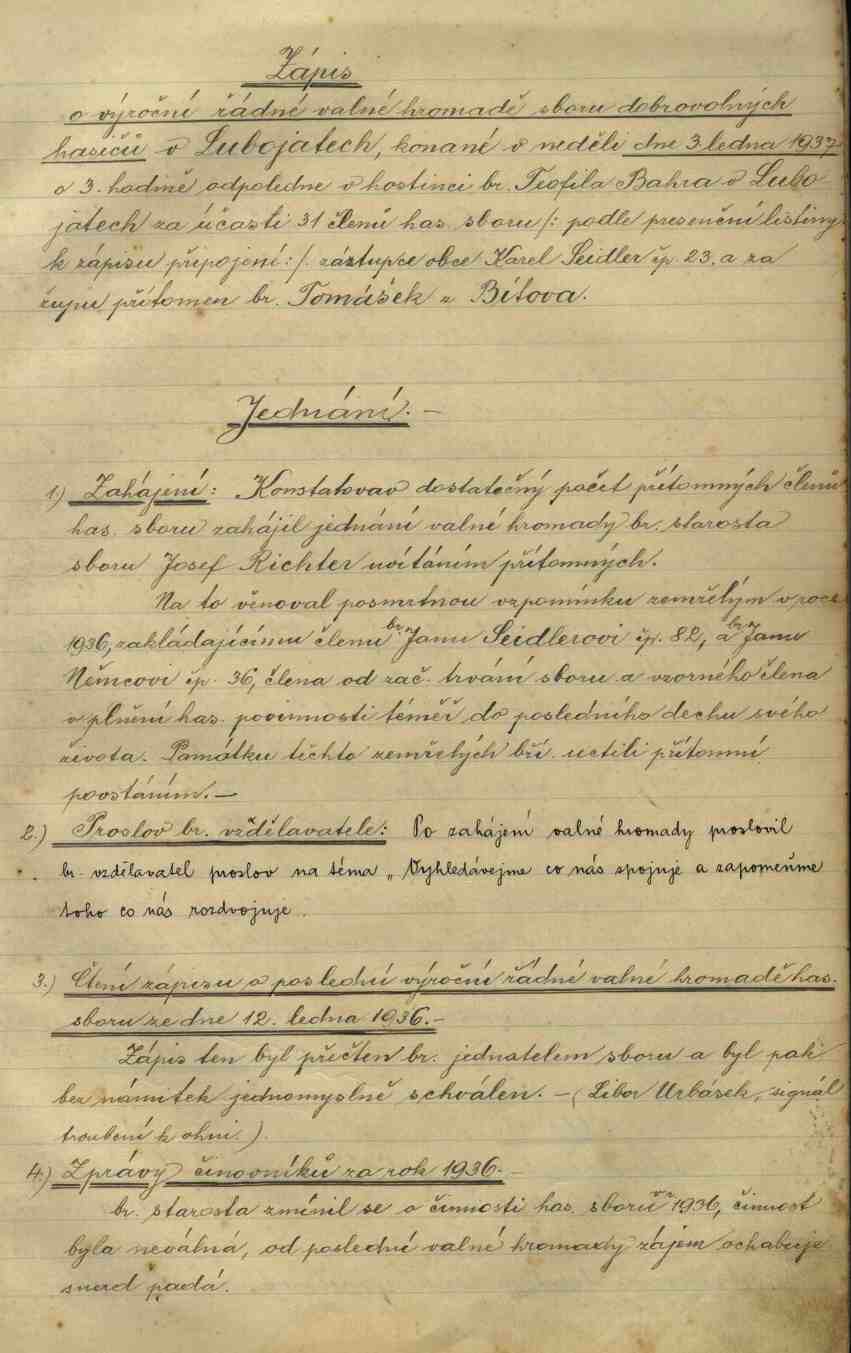 Zápis
o výroční řádné valné hromadě sboru dobrovolných
hasičů v Lubojatech, konané v neděli dne 3 ledna 1937
o 3. hodině odpoledne v hostinci br. Teofila Bahra v Lubo
jatech za účasti 31 členů has. sboru /: podle presenční listiny
k zápisu připojení :/. zástupce obce Karel Seidler čp. 23, a za
župu přítomen br. Tomášek z Bítova.
Jednání. –
1) Zahájení: Konstatovav dostatečný počet přítomných členů
has. sboru zahájil jednání valné hromady br. starosta
sboru Josef Richter uvítáním přítomných.
Na to věnoval posmrtnou vzpomínku zemřelým v roce
1936, zakládajícímu členu br. Janu Seidlerovi čp. 82, a br. Janu
Němcovi čp. 36, člena od zač. trvání sboru a vzorného člena
v plnění has. povinnosti téměř do posledního dechu svého
života. Památku těchto zemřelých bří. uctili přítomní
povstáním. –
2.) Proslov br. vzdělavatele: Po zahájení valné hromady proslovil
br. vzdělavatel proslov na téma „ Vyhledávejme co nás spojuje a zapomeňme
toho co nás rozdvojuje.
3.) Čtení zápisu o poslední výroční řádné valné hromadě has.
sboru ze dne 12. ledna 1936. –
Zápis ten byl přečten br. jednatelem sboru a byl pak
bez námitek jednomyslně schválen. – ( Libor Urbásek, signál
troubení k ohni. )
4.) Zprávy činovníků za rok 1936. –
br. starosta zmínil se o činnosti has. sboru v r. 1936, činnost
byla neválná, od poslední valné hromady zájem ochabuje
padá.